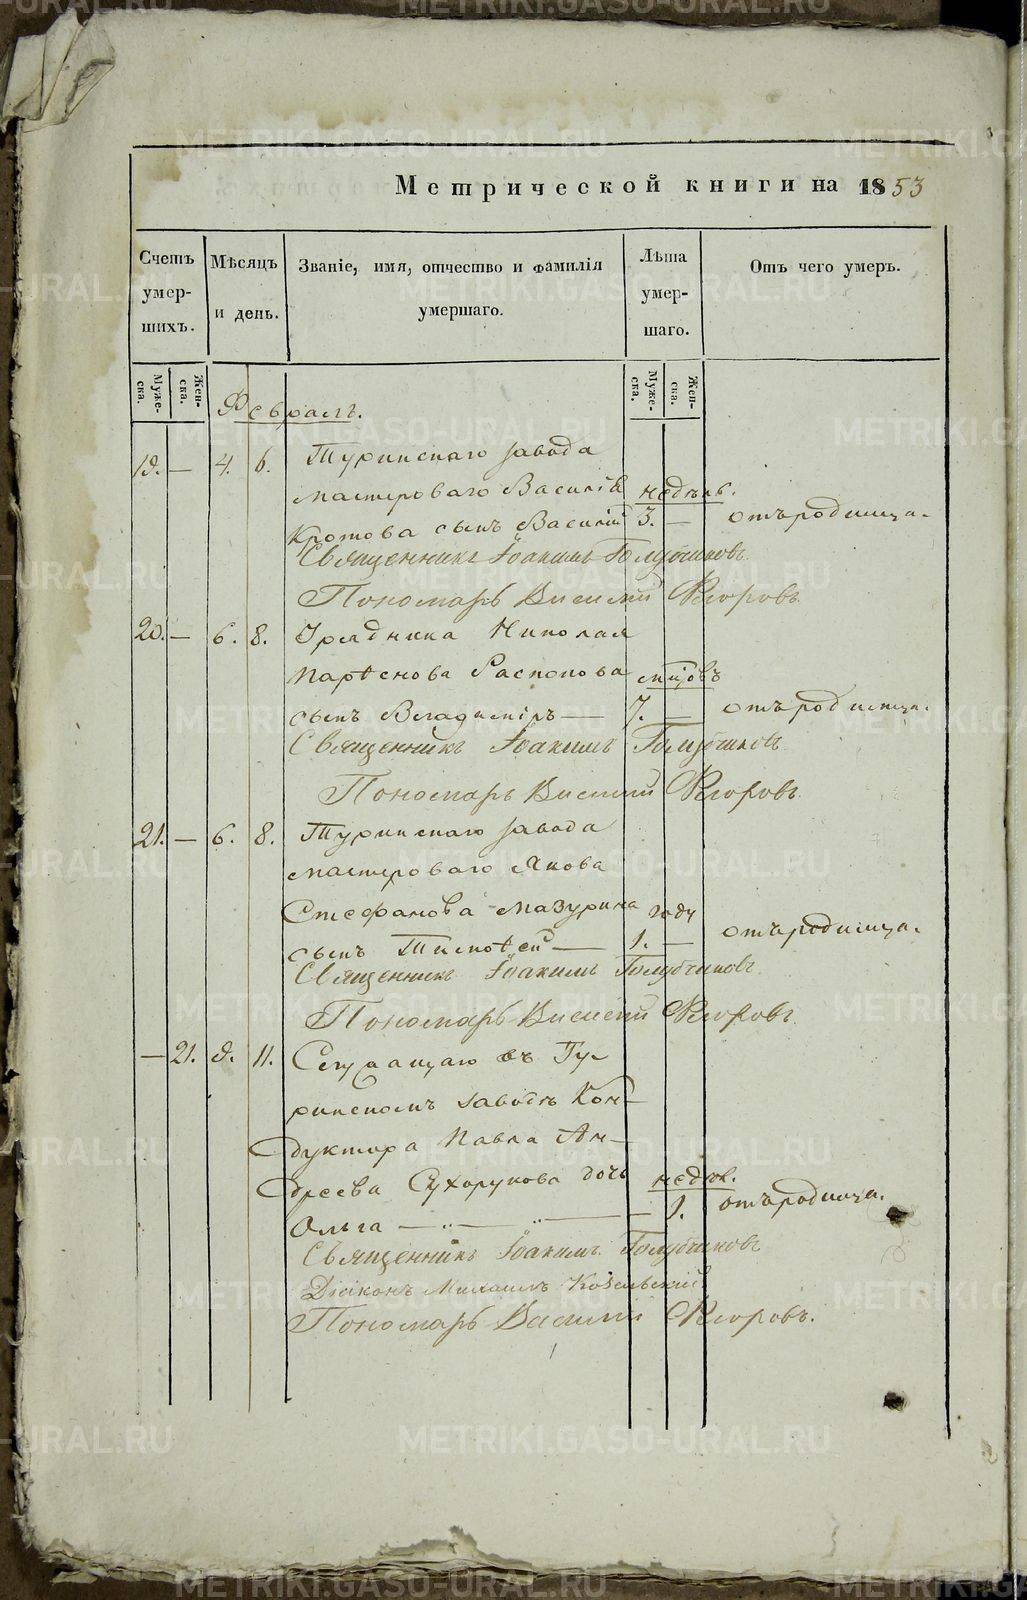 Метрической книги на 1853
Счетъ умер-шихъ.
Мѣсяцъ и день.
Званіе, имя, отчество и фамилія умершаго.
Лѣта умер-шаго.
Отъ чего умеръ.
Муже-ска.
Жен-ска.
Муже-ска.
Жен-ска.
Февраль.
19. — 4. 6. Туринскаго завода
мастероваго Василія недѣль.
Кротова сынъ Василій 3. — отъ родимца.
Священникъ Іоакимъ Голубчиковъ.
Пономарь Василій Егоровъ.
20. — 6. 8. Урядника Николая
Парѳенова Распопова мѣсяцовъ
сынъ Владиміръ — 7. — отъ родимца.
Священникъ Іоакимъ Голубчиковъ.
Пономарь Василій Егоровъ.
21. — 6. 8. Туринскаго завода
мастероваго Якова
Стефанова Мазурина году
сынъ Тимоѳей — 1. — отъ родимца.
Священникъ Іоакимъ Голубчиковъ.
Пономарь Василій Егоровъ.
— 21. 9. 11. Служащаго въ Ту-
ринскомъ заводѣ Кон-
дуктора Павла Ан-
дреева Сухорукова дочь недѣл.
Ольга — — 1. отъ родимца.
Священникъ Іоакимъ Голубчиковъ
Діаконъ Михаилъ Козельскій
Пономарь Василій Егоровъ.
METRIKI.GASO-URAL.RU